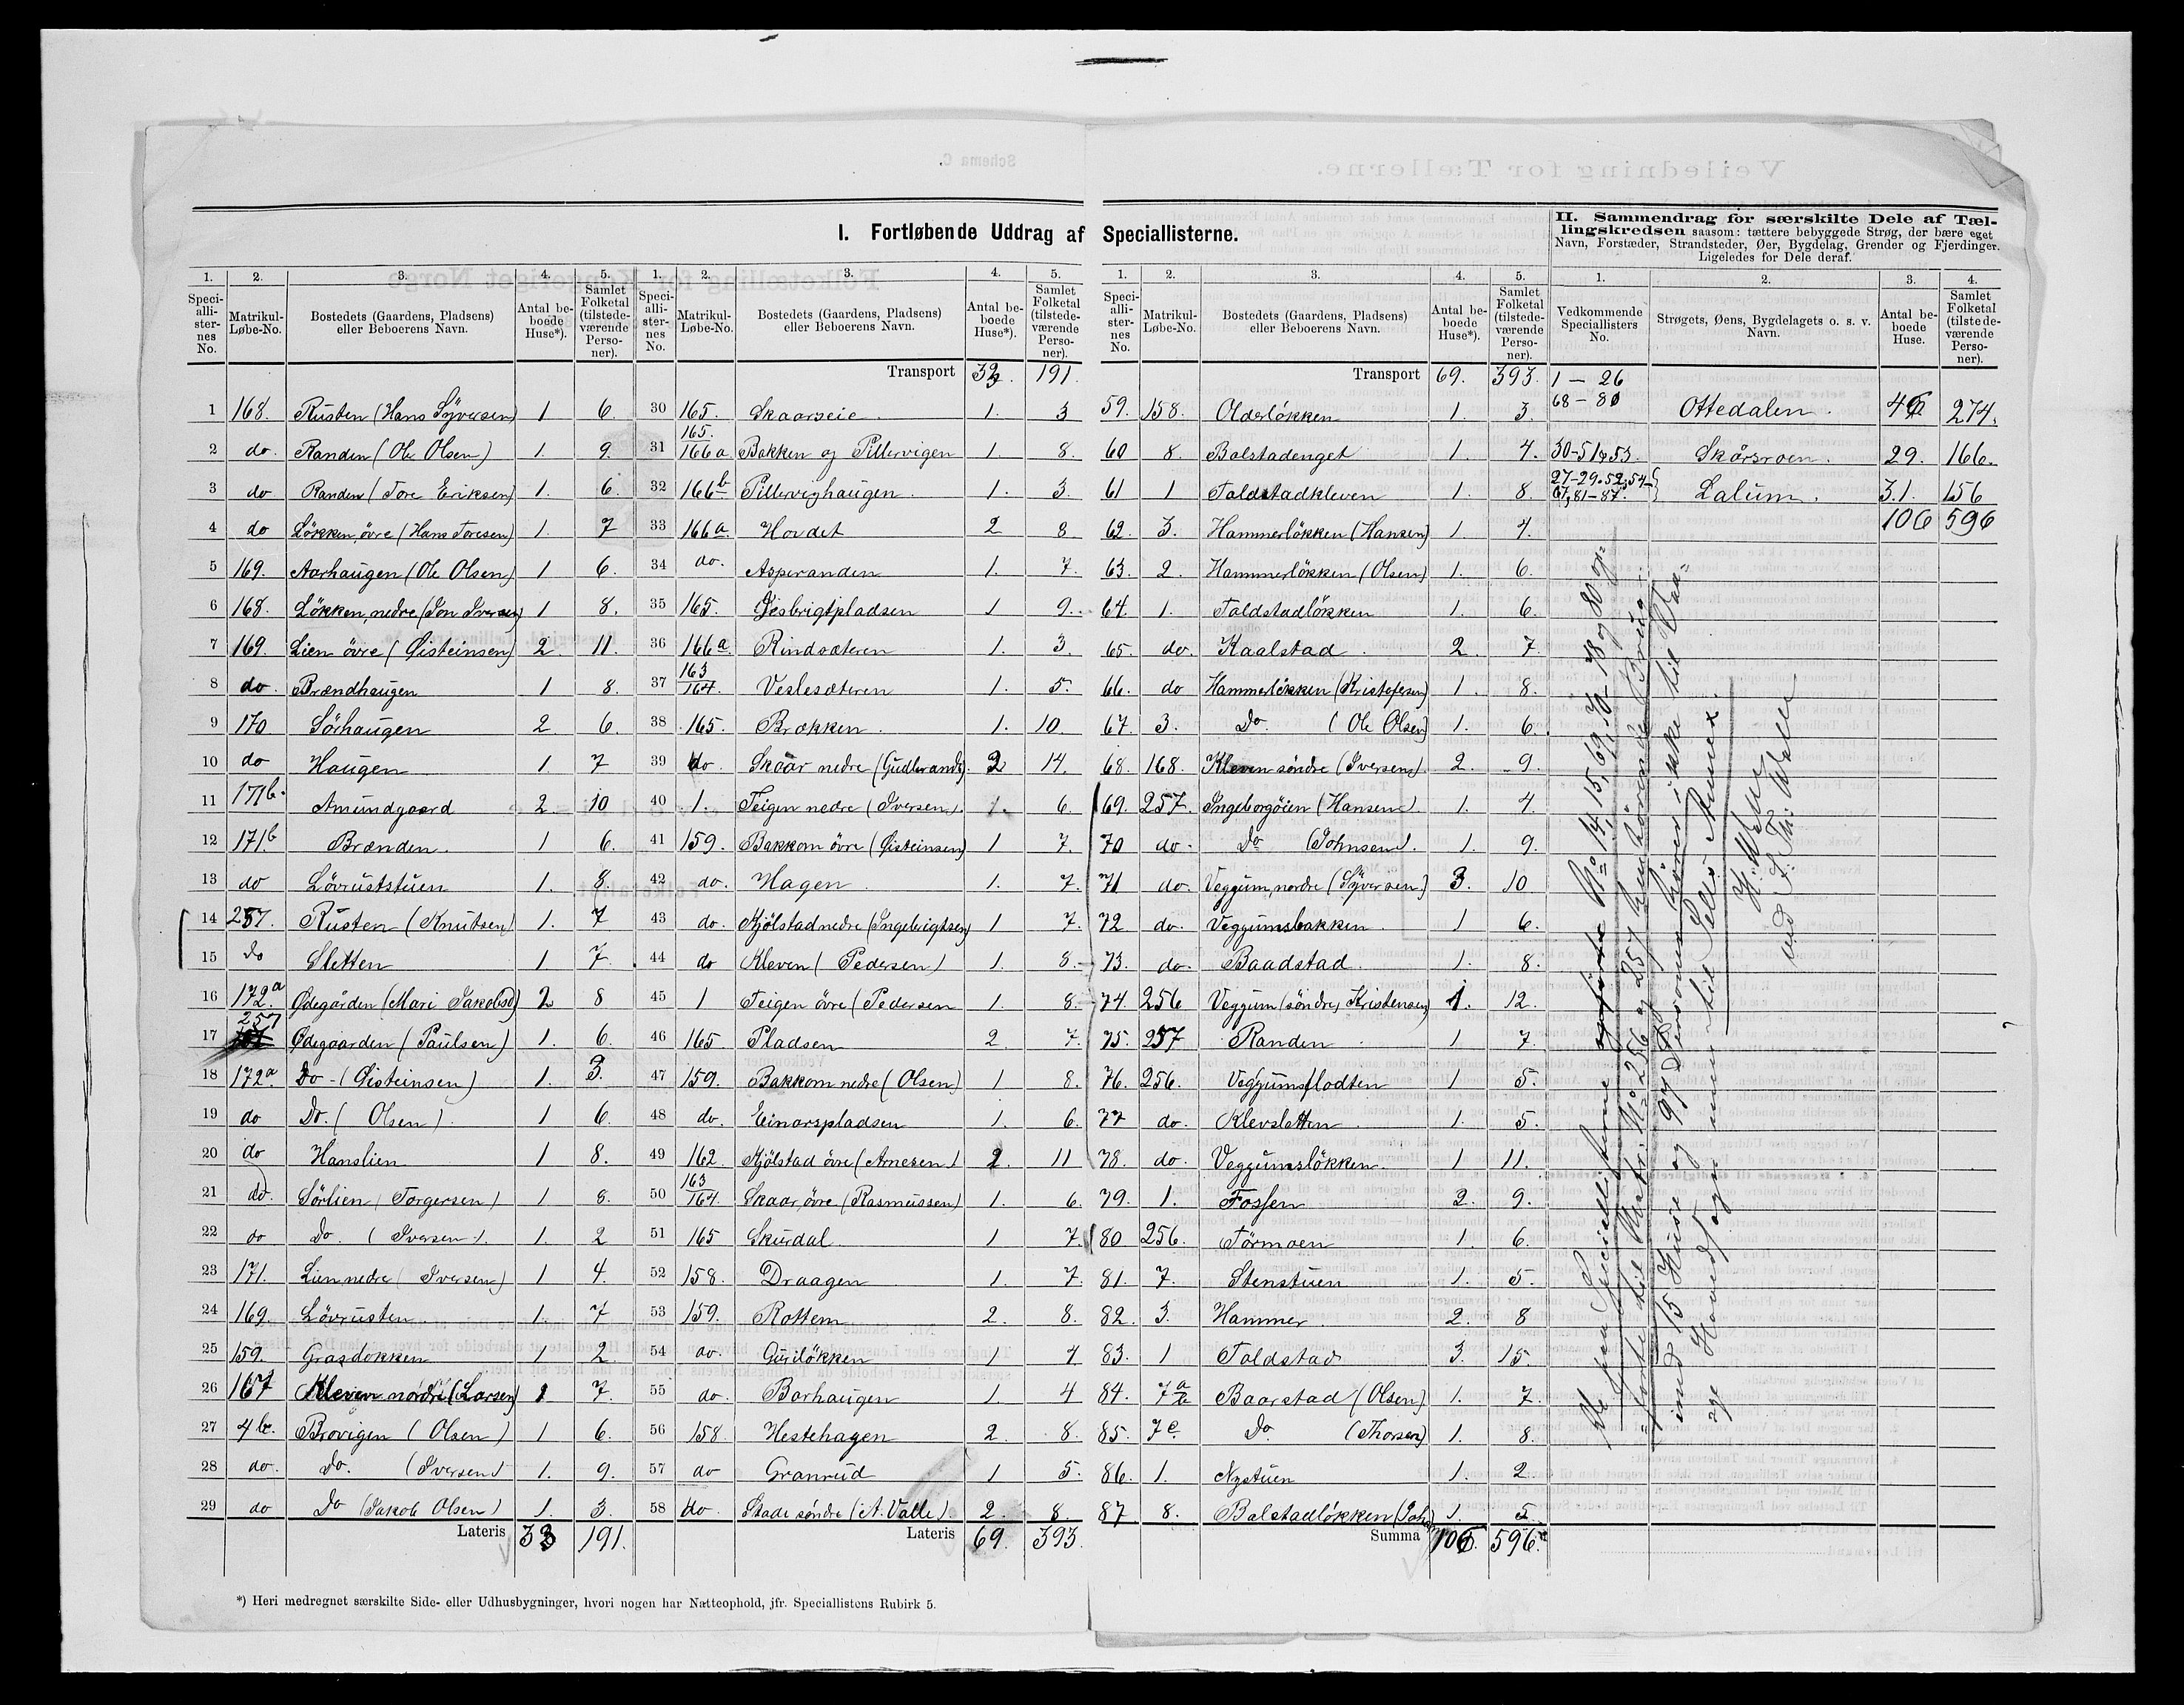 I. Fortløbende Uddrag af Speciallisterne.
1. Speciallisternes No. | 2. Matrikul-Løbe-No. | 3. Bostedets (Gaardens, Pladsens) eller Beboerens Navn. | 4. Antal beboede Huse*). | 5. Samlet Folketal (tilstedeværende Personer).
1 168. Rusten (Hans Syversen) 1 6.
2 do. Randen (Ole Olsen) 1. 9.
3 do Randen (Tore Eriksen) 1. 6.
4 do Løkken, övre (Hans Toresen) 1. 7
5 169. Aarhaugen (Ole Olsen) 1 6.
6 168. Løkken, nedre (Jon Iversen) 1 8.
7 169. Lien övre (Øisteinsen) 2. 11.
8 do. Brændhaugen 1 8.
9 170 Sörhaugen 2 6.
10 do Haugen 1. 7
11 171b. Amundgaard 2. 10
12 171b Brænden. 1 6.
13 do Lövruststuen 1. 8.
14 257. Rusten (Knutsen) 1. 7
15 do Sletten 1 7.
16 172.a Ødegården (Mari Jakobsd) 2 8
17 257 Ødegaarden (Paulsen) 1. 6.
18 172a. Do - (Øisteinsen) 1. 3.
19 do Do. (Olsen). 1 6.
20 do Hanslien 1 8.
21 do. Sörlien (Torgersen) 1 8.
22 do Do. (Iversen). 1. 2
23 171. Lien nedre (Iversen) 1 4.
24 169. Lövrusten. 1. 7
25 159. Grasdokken 1 2.
26 167 Kleven nordre (Larsen) 1 7.
27 4b. Brovigen (Olsen) 1 6.
28 do. Do. (Iversen) 1. 9.
29 do Do (Jakob Olsen) 1. 3.
Lateris 33 191.
1. Speciallisternes No. | 2. Matrikul-Løbe-No. | 3. Bostedets (Gaardens, Pladsens) eller Beboerens Navn. | 4. Antal beboede Huse*). | 5. Samlet Folketal (tilstedeværende Personer).
Transport 33. 191.
30 165. Skaarseie. 1. 3
31 165. 166a Bakken og Pillervigen 1. 8.
32 166b Pillervighaugen 1. 3.
33 166a. Hovdet 2 8
34 do. Asperanden 1. 7.
35 165. Gisbrigtpladsen 1 9.
36 166a. Rindsæteren 1. 3.
37 163 164. Veslesæteren 1. 5.
38 165. Brækken. 1. 10.
39 do. Skaar nedre (Gudbrands). 2 14.
40 1. Teigen nedre (Iversen). 1. 6.
41 159. Bakkom övre (Øisteinsen) 1 7.
42 do. Hagen. 1. 7.
43 do. Kjölstad nedre (Ingebrigtsen) 1 7.
44 do Kleven (Pedersen) 1. 8.
45 1 Teigen övre (Pedersen 1. 8.
46 165 Pladsen 2. 7.
47 159. Bakkom nedre (Olsen) 1 8.
48 do. Einarspladsen 1. 6.
49 162. Kjölstad övre (Arnesen) 2. 11
50 163 164. Skaar, övre (Rasmussen) 1. 6.
51 165 Skurdal. 1 7.
52 158. Draagen 1. 7.
53 159. Rottem 2. 8.
54 do. Guriløkken 1 4
55 do. Borhaugen 1. 4
56 158 Hestehagen 2. 8.
57 do Granrud 1 5.
58 do. Stade söndre (A. Valle). 2. 8.
Lateris 69. 393.
1. Speciallisternes No. | 2. Matrikul-Løbe-No. | 3. Bostedets (Gaardens, Pladsens) eller Beboerens Navn. | 4. Antal beboede Huse*). | 5. Samlet Folketal (tilstedeværende Personer).
Transport 69. 393.
59. 158. Olderløkken 1. 3.
60 8. Bolstadenget 1. 4.
61 1 Toldstadkleven 1. 8.
62. 3. Hammerløkken (Hansen) 1. 4.
63. 2. Hammerløkken (Olsen) 1. 6.
64. 1. Toldstadløkken 1. 6.
65. do. Kaalstad. 2. 7.
66. do Hammerløkken (Kristofersen) 1. 8.
67. 3. Do. (Ole Olsen) 1. 6.
68. 168. Kleven söndre (Iversen). 2. 9.
69. 257. Ingeborgöien (Hansen). 1. 4.
70 do. Do (Johnsen). 1. 9.
71 do. Veggum, nordre (Syversen) 3. 10
72 do. Veggumsbakken. 1 6.
73. do. Baadstad. 1. 8.
74. 256 Veggum (söndre, Kristensen) 1. 12.
75. 257 Randen. 1 7.
76. 256. Veggumsflodten 1 5.
77 do. Klevsletten. 1. 5.
78. do. Veggumsløkken. 1 11.
79. 1. Fossen 2. 9.
80 256. Törmoen 1. 6.
81. 7. Stenstuen 1. 5.
82. 3. Hammer. 2. 8
83. 1 Toldstad 3. 15.
84. 7a Baarstad (Olsen) 1. 7.
85. 7c. Do. (Thorsen) 1. 8.
86. 1. Nystuen 1. 2.
87 8. Bolstadløkken (Joh) 1. 5.
Summa 106. 596.
II. Sammendrag for særskilte Dele af Tællingskredsen saasom: tættere bebyggede Strøg, der bære eget
Navn, Forstæder, Strandsteder, Øer, Bygdelag, Grender og Fjerdinger.
Ligeledes for Dele deraf.
1. Vedkommende Speciallisters No. | 2. Strøgets, Øens, Bygdelagets o. s. v. Navn. | 3. Antal beboede Huse. | 4. Samlet Folketal (tilstedeværende Personer).
1 - 26 68 - 80 Ottedalen. 46 274.
30-51 & 53. Skårsroen. 29. 166.
27-29. 52, 54-67, 81-87. Lalum. 31. 156
106 596
De paa Speciallisterne opførte No 14, 15, 69, 70-78 og 80 og
til Matr. No 256 og 257 henhörende
15 Huse og 97 Personer hörer ikke til
Hovedsogn men til Sells Annex.
H. Walle
ved J. Th. Walle
*) Heri medregnet særskilte Side- eller Udhusbygninger, hvori nogen har Natteophold, jfr. Speciallistens Rubirk 5.